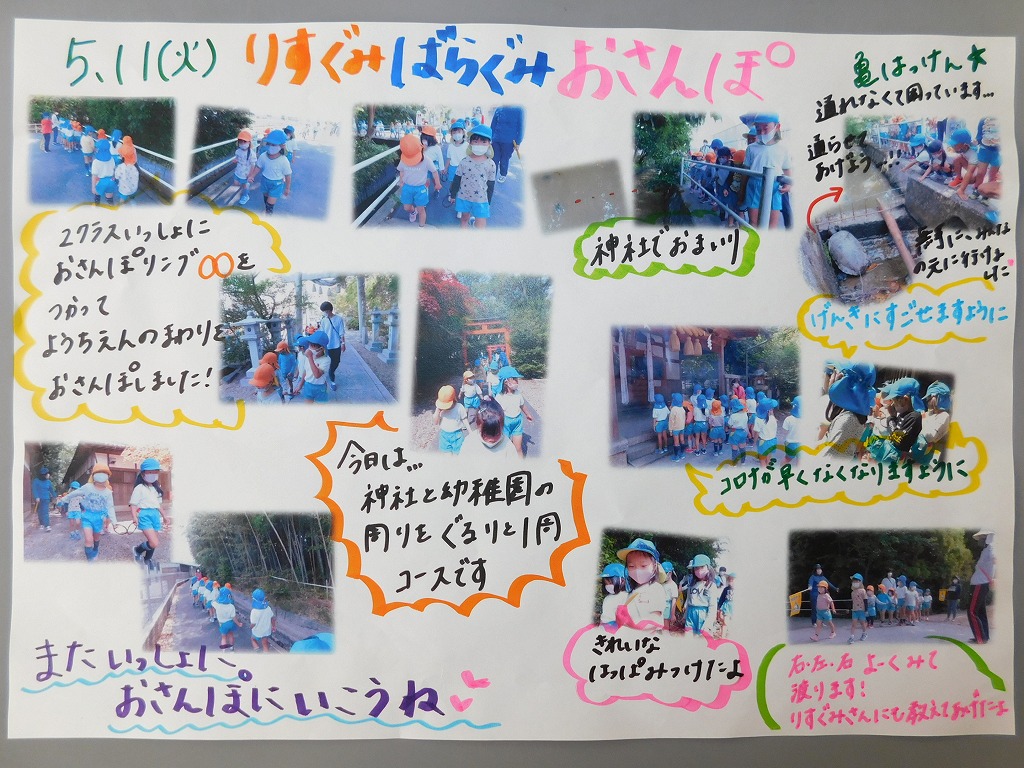 5.11(火) りすぐみばらぐみ おさんぽ
亀はっけん★
通れなくて困っています…
通らせて
あげよう…!
無事に、みな
の元に行けま
した
2クラスいっしょに
おさんぽリング○○を
つかって
ようちえんのまわりを
おさんぽしました!
神社でおまいり
げんきにすごせますように
コロナが早くなくなりますように
今日は…
神社と幼稚園の
周りをぐるりと1周
コースです
きれいな
はっぱみつけたよ
右・左・右 よーくみて
渡ります!
りすぐみさんにも教えてあげたよ
またいっしょに
おさんぽにいこうね